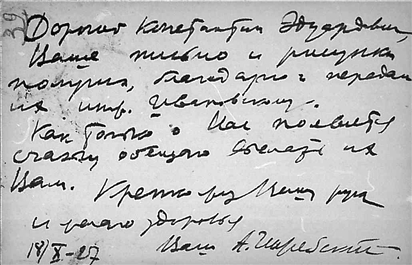 39
Дорогой Константин Эдуардович,
Ваше письмо и рисунки
получил, благодарю и передал
их инж. Ивановскому.
Как только о Вас появятся
статьи обещаю выслать их
Вам. Крепко жму Вашу руку
и желаю здоровья
18/X-27 Ваш